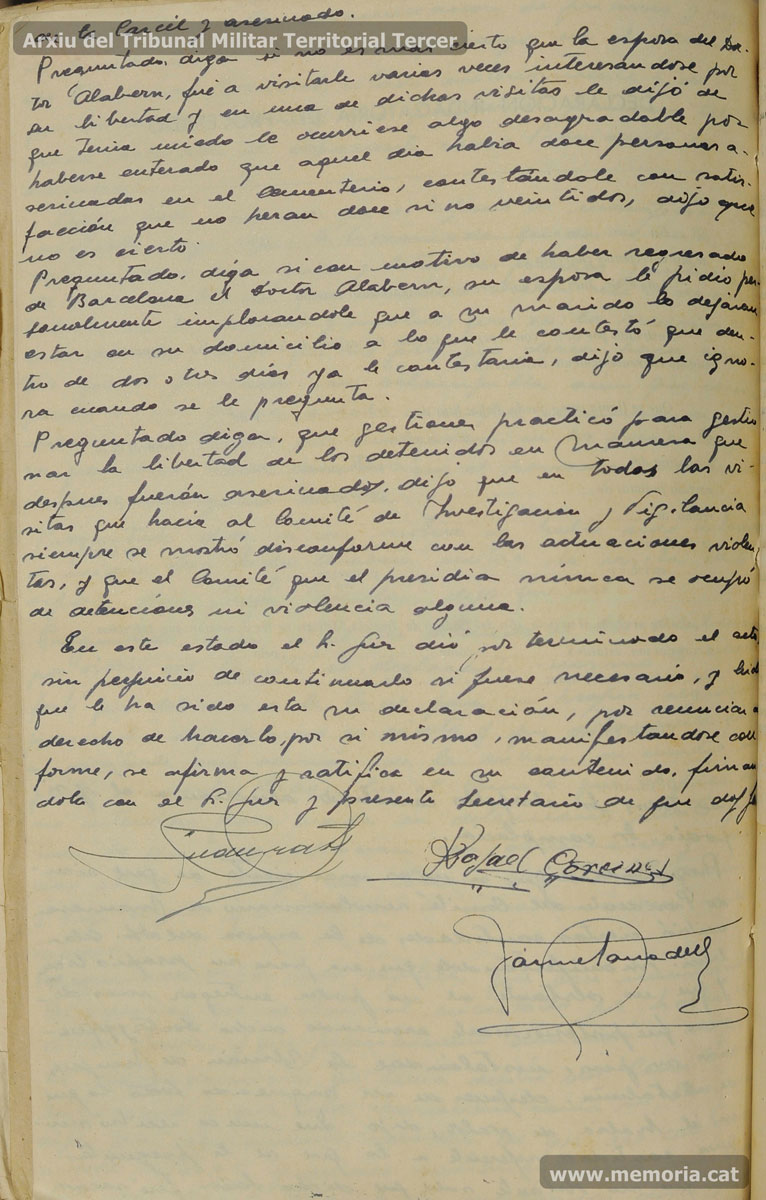 en la Carcel y asesinado.
Arxiu del Tribunal Militar Territorial Tercer
Preguntado. diga si no es mas cierto que la esposa del Doc-
tor Alabern, fué a visitarle varias veces interesandose por
su libertad y en una de dichas visitas le dijó de
que tenia miedo le ocurriese algo desagradable por
haberse enterado que aquel dia habia doce personas a-
sesinadas en el Cementerio, contestándole con satis-
facción que no heran doce si no veintidos, dijo que
no es cierto.
Preguntado. diga si con motivo de haber regresado
de Barcelona el Doctor Alabern, su esposa le pidio per-
sonalmente implorandole que a su marido lo dejaran
estar en su domicilio a lo que le contestó que den-
tro de dos o tres dias ya le contestaria, dijo que igno-
ra cuando se le pregunta.
Preguntado diga, que gestiones practicó para gestio
nar la libertad de los detenidos en Manresa que
despues fuerón asesinados, dijo que en todas las vi-
sitas que hacia al Comité de Investigación y Vigilancia
siempre se mostró disconforme con las actuaciones violen
tas, y que el Comité que el presidia núnca se ocupó
de detenciones ni violencia alguna.
En este estado el S. Juez dió por terminado el acto
sin perjuicio de continuarlo si fuese necesario, y leida
que le ha sido esta su declaración, por renunciar a
derecho de hacerlo por si mismo, manifestandose con
forme, se afirma y ratifica en su contenido, firman
dola con el S. Juez y presente Secretario de que doy fe
Rafael Corvinos
Jaime
www.memoria.cat